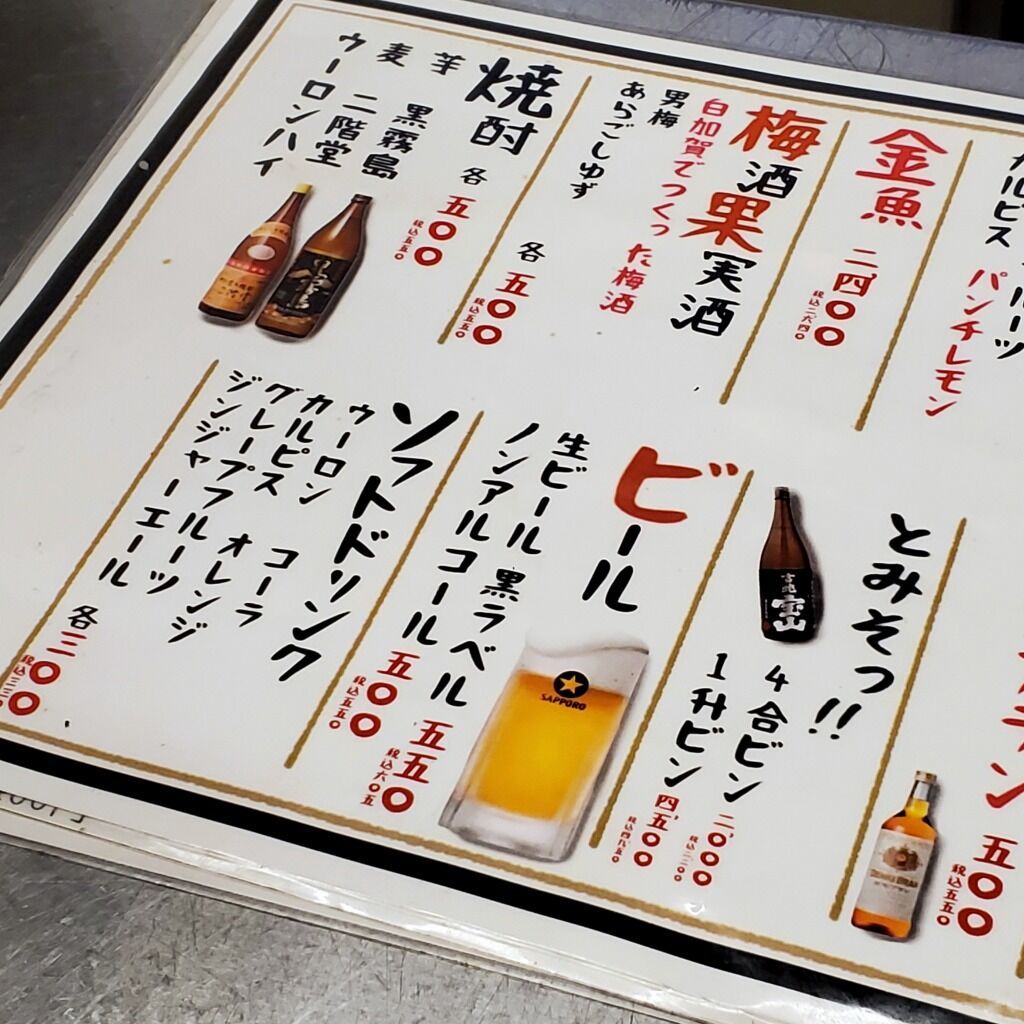 カルピス
パンチレモン
金魚
二、四〇〇
税込二、六四〇
梅酒果実酒
白加賀でつくった梅酒
男梅
あらごしゆず
各 五〇〇
税込五五〇
焼酎
芋 黒霧島
麦 二階堂
ウーロンハイ
各 五〇〇
税込五五〇
五〇〇
税込五五〇
とみそっ!!
4合ビン 二、〇〇〇
税込二、二〇〇
1升ビン 四、五〇〇
税込四、九五〇
吉兆宝山
ビール
生ビール 黒ラベル 五五〇
税込六〇五
ノンアルコール 五〇〇
税込五五〇
SAPPORO
ソフトドリンク
ウーロン コーラ
カルピス オレンジ
グレープフルーツ
ジンジャーエール
各 三〇〇
税込三三〇